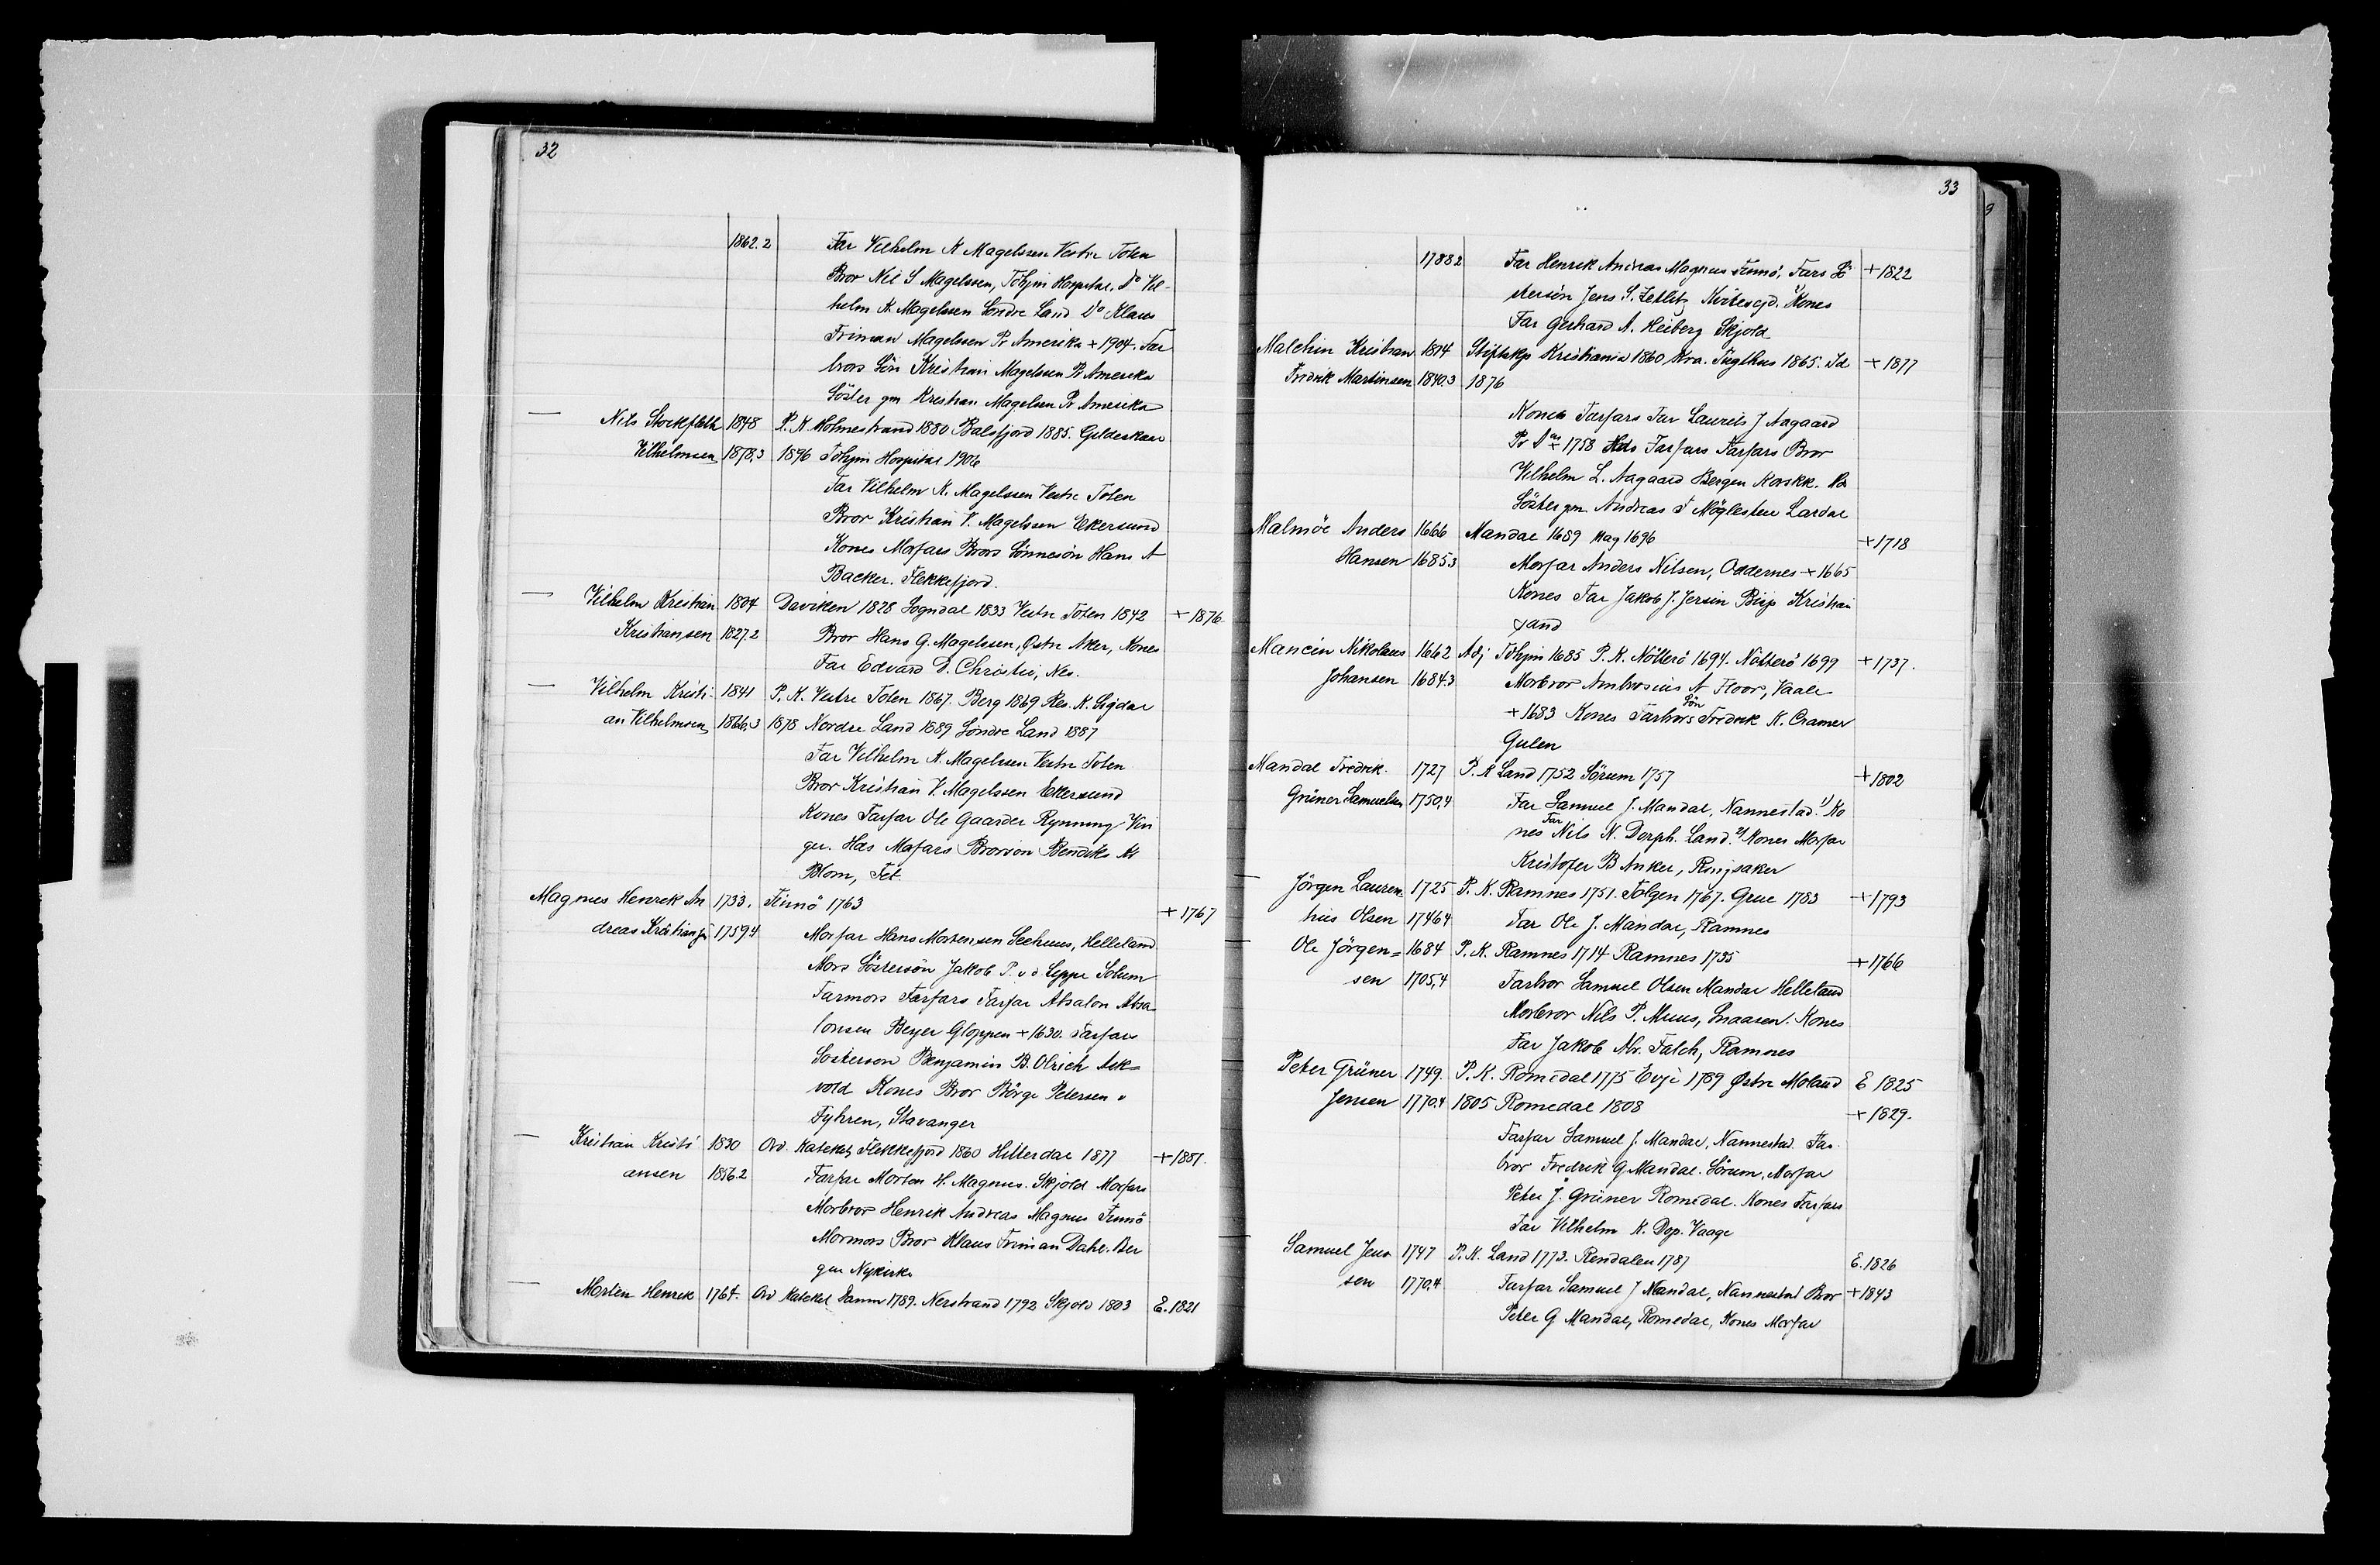 32
1862.2 Far Vilhelm K Magelssen Vestre Toten
Bror Nil S Magelssen, Tohjm Hospital. Do Vil-
helm K. Magelssen Söndre Land Do Klaus
Friman Magelssen Pr Amerika + 1904. Far
brors Sön Kristian Magelssen Pr Amerika
Söster gm Kristian Magelsen Pr Amerika
— Nils Stockfleth 1848 P. K Holmestrand 1880 Balsfjord 1885. Gildeskaal
Vilhelmsen 1878,3 1896 Tohjm Hospital 1906
Far Vilhelm K. Magelssen Vestre Toten
Bror Kristian V. Magelssen Ekersund
Kones Morfars Brors Sönnesön Hans A
Backer. Flekkefjord.
— Vilhelm Kristian 1804 Daviken 1828 Sogndal 1833 Vestre Toten 1842 + 1876
Kristiansen 1827.2 Bror Hans G. Magelssen, Østre Aker, Kones
Far Edvard E. Christie, Nes.
— Vilhelm Kristi- 1841 P. K. Vestre Toten 1867. Berg 1869 Res. K. Sigdal
an Vilhelmsen 1866,3 1878 Nordre Land 1889 Söndre Land 1887
Far Vilhelm K. Magelssen Vestre Toten
Bror Kristian V. Magelssen Ekersund
Kones Farfar Ole Gaarder Rynning Vin
ger. Hds Mofars Brorsön Bendiks
Blom, Fet
Magnus Henrik An 1733. Finnö 1763 + 1767
dreas Kristiansen 1759,4 Morfar Hans Mortensen Seehuus, Helleland
Mors Söstersön Jakob P. v d Lippe Solum
Farmors Farfars Farfar Absalon Absa-
lonsen Beyer Gloppen + 1630. Farfars
Sostersøn Benjamin B. Olrich Ask=
vold Kones Bror Börge Petersen v
Fyhren, Stavanger
— Kristian Kristi 1830 Ord. Kateket Flekkefjord 1860 Hitterdal 1877 + 1881.
ansen 1856.2 Farfar Morten H. Magnus. Skjold Morfars
Morbror Henrik Andreas Magnus Finnö
Mormors Bror Klaus Friman Dahl. Ber
gen Nykirke
— Morten Henrik 1764. Ord Kateket Lanm 1789. Nerstrand 1792 Skjold 1803 E. 1821
33
1788 2 Far Henrik Andreas Magnus Finnö, Fars Sö + 1822
stersön Jens S. Zetlitz Kvitesejd. Kones
Far Gerhard A. Heiberg Skjold
Malchin Kristian 1814 Stiftskp Kristiania 1860 Kra. Tugthus 1865. Id + 1877
Fredrik Martinsen 1840.3 1876
Kones Farfars Far Laurits J Aagaard
+ 1758 Hds Farfars Farfars Bror
Vilhelm L. Aagaard Bergen Korskk. Ds
Söster gm Andreas T Möglestue Lardal
Malmöe Anders 1666 Mandal 1689 Mag 1696 + 1718
Hansen 1685.3 Morfar Anders Nilsen, Oddernes + 1665
Kones Far Jakob J. Jersin Bisp Kristian
sand
Mancin Nikolaus 1662 Adj Tohjm 1685 P. K. Nötterö 1694. Nötterö 1699 + 1737.
Johansen 1684.3 Morbror Ambrosius A Floor, Vaale
+ 1683 Kones Farbrors Sön Fredrik K. Cramer
Gulen
Mandal Fredrik 1727 P. K Land 1752 Sörum 1757 + 1802
Grüner Samuelsen 1750,4 Far Samuel J. Mandal, Nannestad. 1) Ko
nes Far Nils N. Dorph. Land. 2) Kones Morfar
Kristofer B Anker, Ringsaker
— Jörgen Lauren= 1725 P. K. Ramnes 1751. Tolgen 1767. Grue 1783 + 1793
tius Olsen 1746 4 Far Ole J. Mandal, Ramnes
— Ole Jörgen= 1684 P. K. Ramnes 1714 Ramnes 1735 + 1766
sen 1705,4 Farbror Samuel Olsen Mandal Helleland
Morbror Nils P. Muus, Snaasen. Kones
Far Jakob Nr. Falch, Ramnes
Peter Grüner 1749. P. K. Romedal 1775 Evje 1789 Østre Moland E 1825
Jensen 1770.4 1805 Romedal 1808 + 1829.
Farfar Samuel J. Mandal, Nannestad. Far-
bror Fredrik G Mandal. Sörum, Morfar
Peter J. Grüner Romedal. Kones Farfars
Far Vilhelm K. Dop. Vaage
— Samuel Jen- 1747 P. K. Land 1773. Rendalen 1787 E. 1826
sen 1770,4 Farfar Samuel J Mandal, Nannestad Bror + 1843
Peter G Mandal, Romedal, Kones Morfar